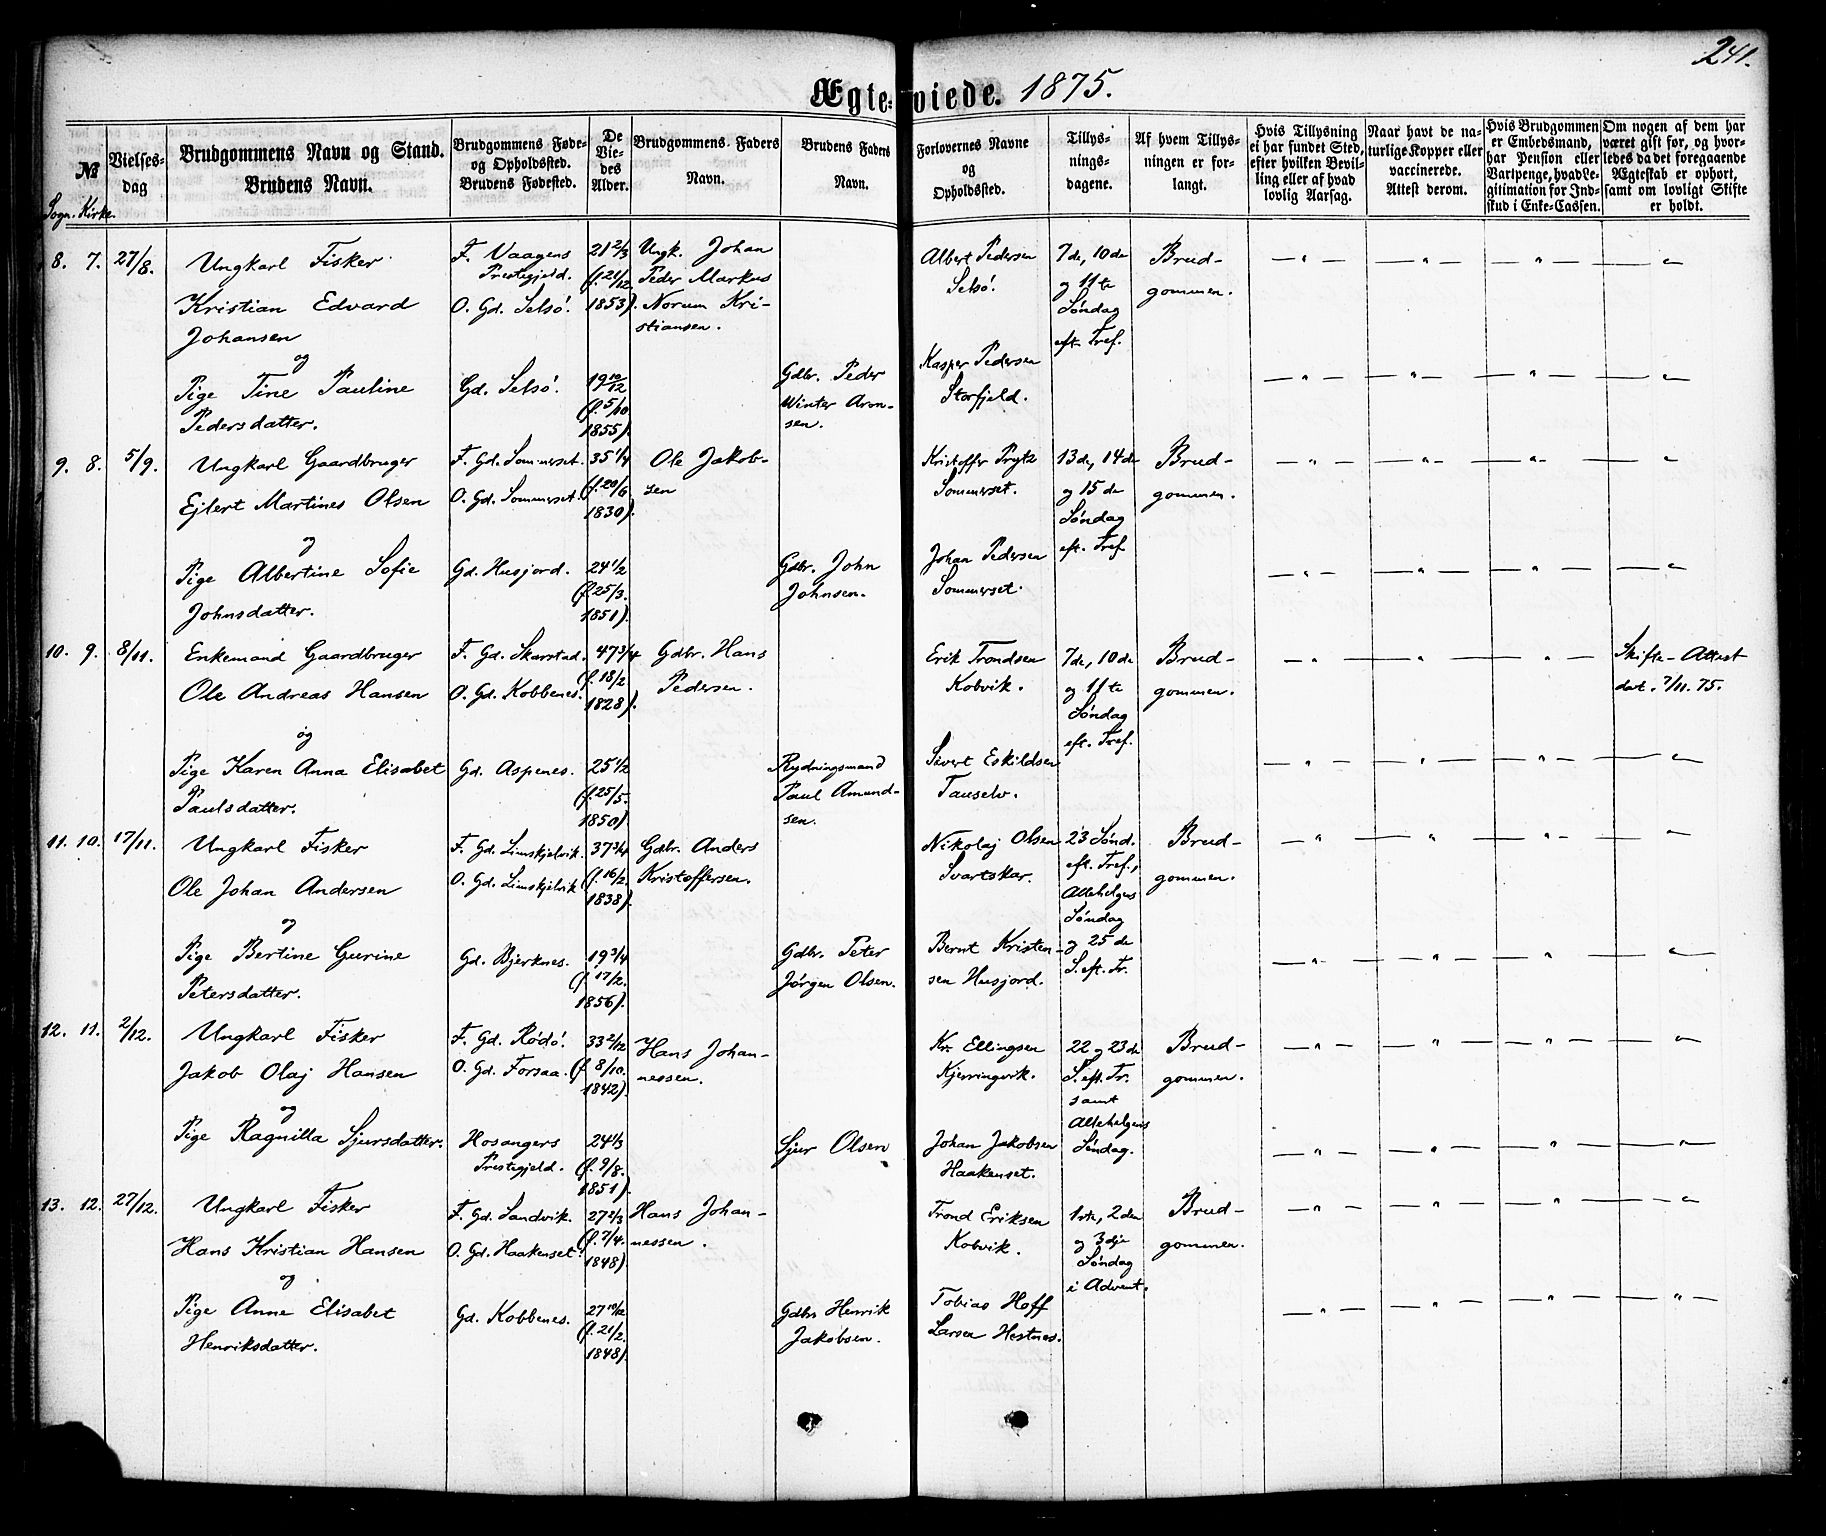 241.
Ægteviede. 1875.
№
Sogn. Kirke.
Vielses-
dag
Brudgommens Navn og Stand.
Brudens Navn.
Brudgommens Føde-
og Opholdsted.
Brudens Fødested.
De
Vie-
des
Alder.
Brudgommens Faders
Navn.
Brudens Faders
Navn.
Forlovernes Navne
og
Opholdsted.
Tillys-
nings-
dagene.
Af hvem Tillys-
ningen er for-
langt.
Hvis Tillysning
ei har fundet Sted,
efter hvilken Bevil-
ling eller af hvad
lovlig Aarsag.
Naar havt de na-
turlige Kopper eller
vaccinerede.
Attest derom.
Hvis Brudgommen
er Embedsmand,
har Pension eller
Vartpenge, hvad Le-
gitimation for Ind-
skud i Enke-Cassen.
Om nogen af dem har
været gift før, og hvor-
ledes da det foregaaende
Ægteskab er ophørt,
samt om lovligt Skifte
er holdt.
8. 7. 27/8.
Ungkarl Fisker
Kristian Edvard
Johansen
og
Pige Tine Pauline
Pedersdatter.
F. Vaagens
Prestegjeld.
O. Gd. Selsö.
Gd. Selsö.
21 2/3
(f. 21/12
1853).
19 10/12
(f. 5/10
1855).
Ungk. Johan
Peder Markus
Norum Kri-
stiansen.
Gdbr. Peder
Winter Aron-
sen.
Albert Pedersen
Selsö.
Kasper Pedersen
Storfjeld.
7de, 10de
og 11te
Søndag
eft. Tref.
Brud-
gommen.
— " — — " — — " — — " —
— " — — " — — " — — " —
9. 8. 5/9.
Ungkarl Gaardbruger
Ejlert Martines Olsen
og
Pige Albertine Sofie
Johnsdatter.
F. Gd. Sommerset.
O. Gd. Sommerset.
Gd. Husjord.
35 1/4
(f. 20/6
1830).
24 1/2
(f. 25/3.
1851).
Ole Jakob-
sen
Gdbr. John
Johnsen.
Kristoffer Prytz
Sommerset.
Johan Pedersen
Sommerset.
13de, 14de
og 15de
Søndag
eft. Tref.
Brud-
gommen.
— " — — " — — " — — " —
— " — — " — — " — — " —
10. 9. 8/11.
Enkemand Gaardbruger
Ole Andreas Hansen
og
Pige Karen Anna Elisabet
Paulsdatter.
F. Gd. Skarstad.
O. Gd. Kobbenes.
Gd. Aspenes.
47 3/4
(f. 18/2
1828).
25 1/2
(f. 25/5.
1850).
Gdbr. Hans
Pedersen.
Rydningsmand
Paul Amund-
sen.
Erik Trondsen
Kobvik.
Sivert Eskildsen
Tauselv.
7de, 10de
og 11te
Søndag
eft. Tref.
Brud-
gommen.
— " — — " — — " —
Skifte-Attest
dat. 7/11. 75.
— " — — " — — " — — " —
11. 10. 17/11.
Ungkarl Fisker
Ole Johan Andersen
og
Pige Bertine Gurine
Petersdatter.
F. Gd. Limskjelvik.
O. Gd. Limskjelvik
Gd. Bjerknes.
37 3/4
(f. 16/2.
1838).
19 3/4
(f. 17/2.
1856).
Gdbr. Anders
Kristoffersen.
Gdbr. Peter
Jørgen Olsen.
Nikolaj Olsen
Svartskar.
Bernt Kristen-
sen Husjord.
23 Sønd.
eft. Tref.,
Allehelgens
Søndag
og 25de
S. eft. Tr.
Brud-
gommen.
— " — — " — — " — — " —
— " — — " — — " — — " —
12. 11. 2/12.
Ungkarl Fisker
Jakob Olaj Hansen
og
Pige Ragnilla Sjursdatter.
F. Gd. Rödö.
O. Gd. Forsaa.
Hosangers
Prestegjeld.
33 2/12
(f. 8/10.
1842).
24 1/3
(f. 9/8.
1851).
Hans Johan-
nessen.
Sjur Olsen
Kr. Ellingsen
Kjerringvik.
Johan Jakobsen
Haakenset.
22 og 23de
S. eft. Tr.
samt
Allehelgens
Søndag.
Brud-
gommen.
— " — — " — — " — — " —
— " — — " — — " — — " —
13. 12. 27/12.
Ungkarl Fisker
Hans Kristian Hansen
og
Pige Anne Elisabet
Henriksdatter.
F. Gd. Sandvik.
O. Gd. Haakenset.
Gd. Kobbenes.
27 2/3
(f. 7/4.
1848)
27 10/12
(f. 21/2.
1848).
Hans Johan-
nessen.
Gdbr Henrik
Jakobsen.
Trond Eriksen
Kobvik.
Tobias Hoff
Larsen Hestnes.
1ste, 2den
og 3dje
Søndag
i Advent.
Brud-
gommen.
— " — — " — — " — — " —
— " — — " — — " — — " —